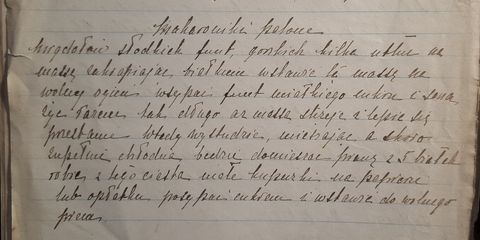 Makaroniki polone
Migdałów słodkich funt, gorzkich kilka utłuc na
massę zakrapiając białkiem wstawić tę massę na
wolny ogień wsypać funt miałkiego cukru i sma
żyć razem tak długo aż massa stężeje i lepić się
przestanie wtedy wystudzić, mieszając a skoro
zupełnie chłodna będzie domieszać pianę z 5 białek
robić z tego ciasta małe kupeczki na papierze
lub opłatku posypać cukrem i wstawić do wolnego
pieca